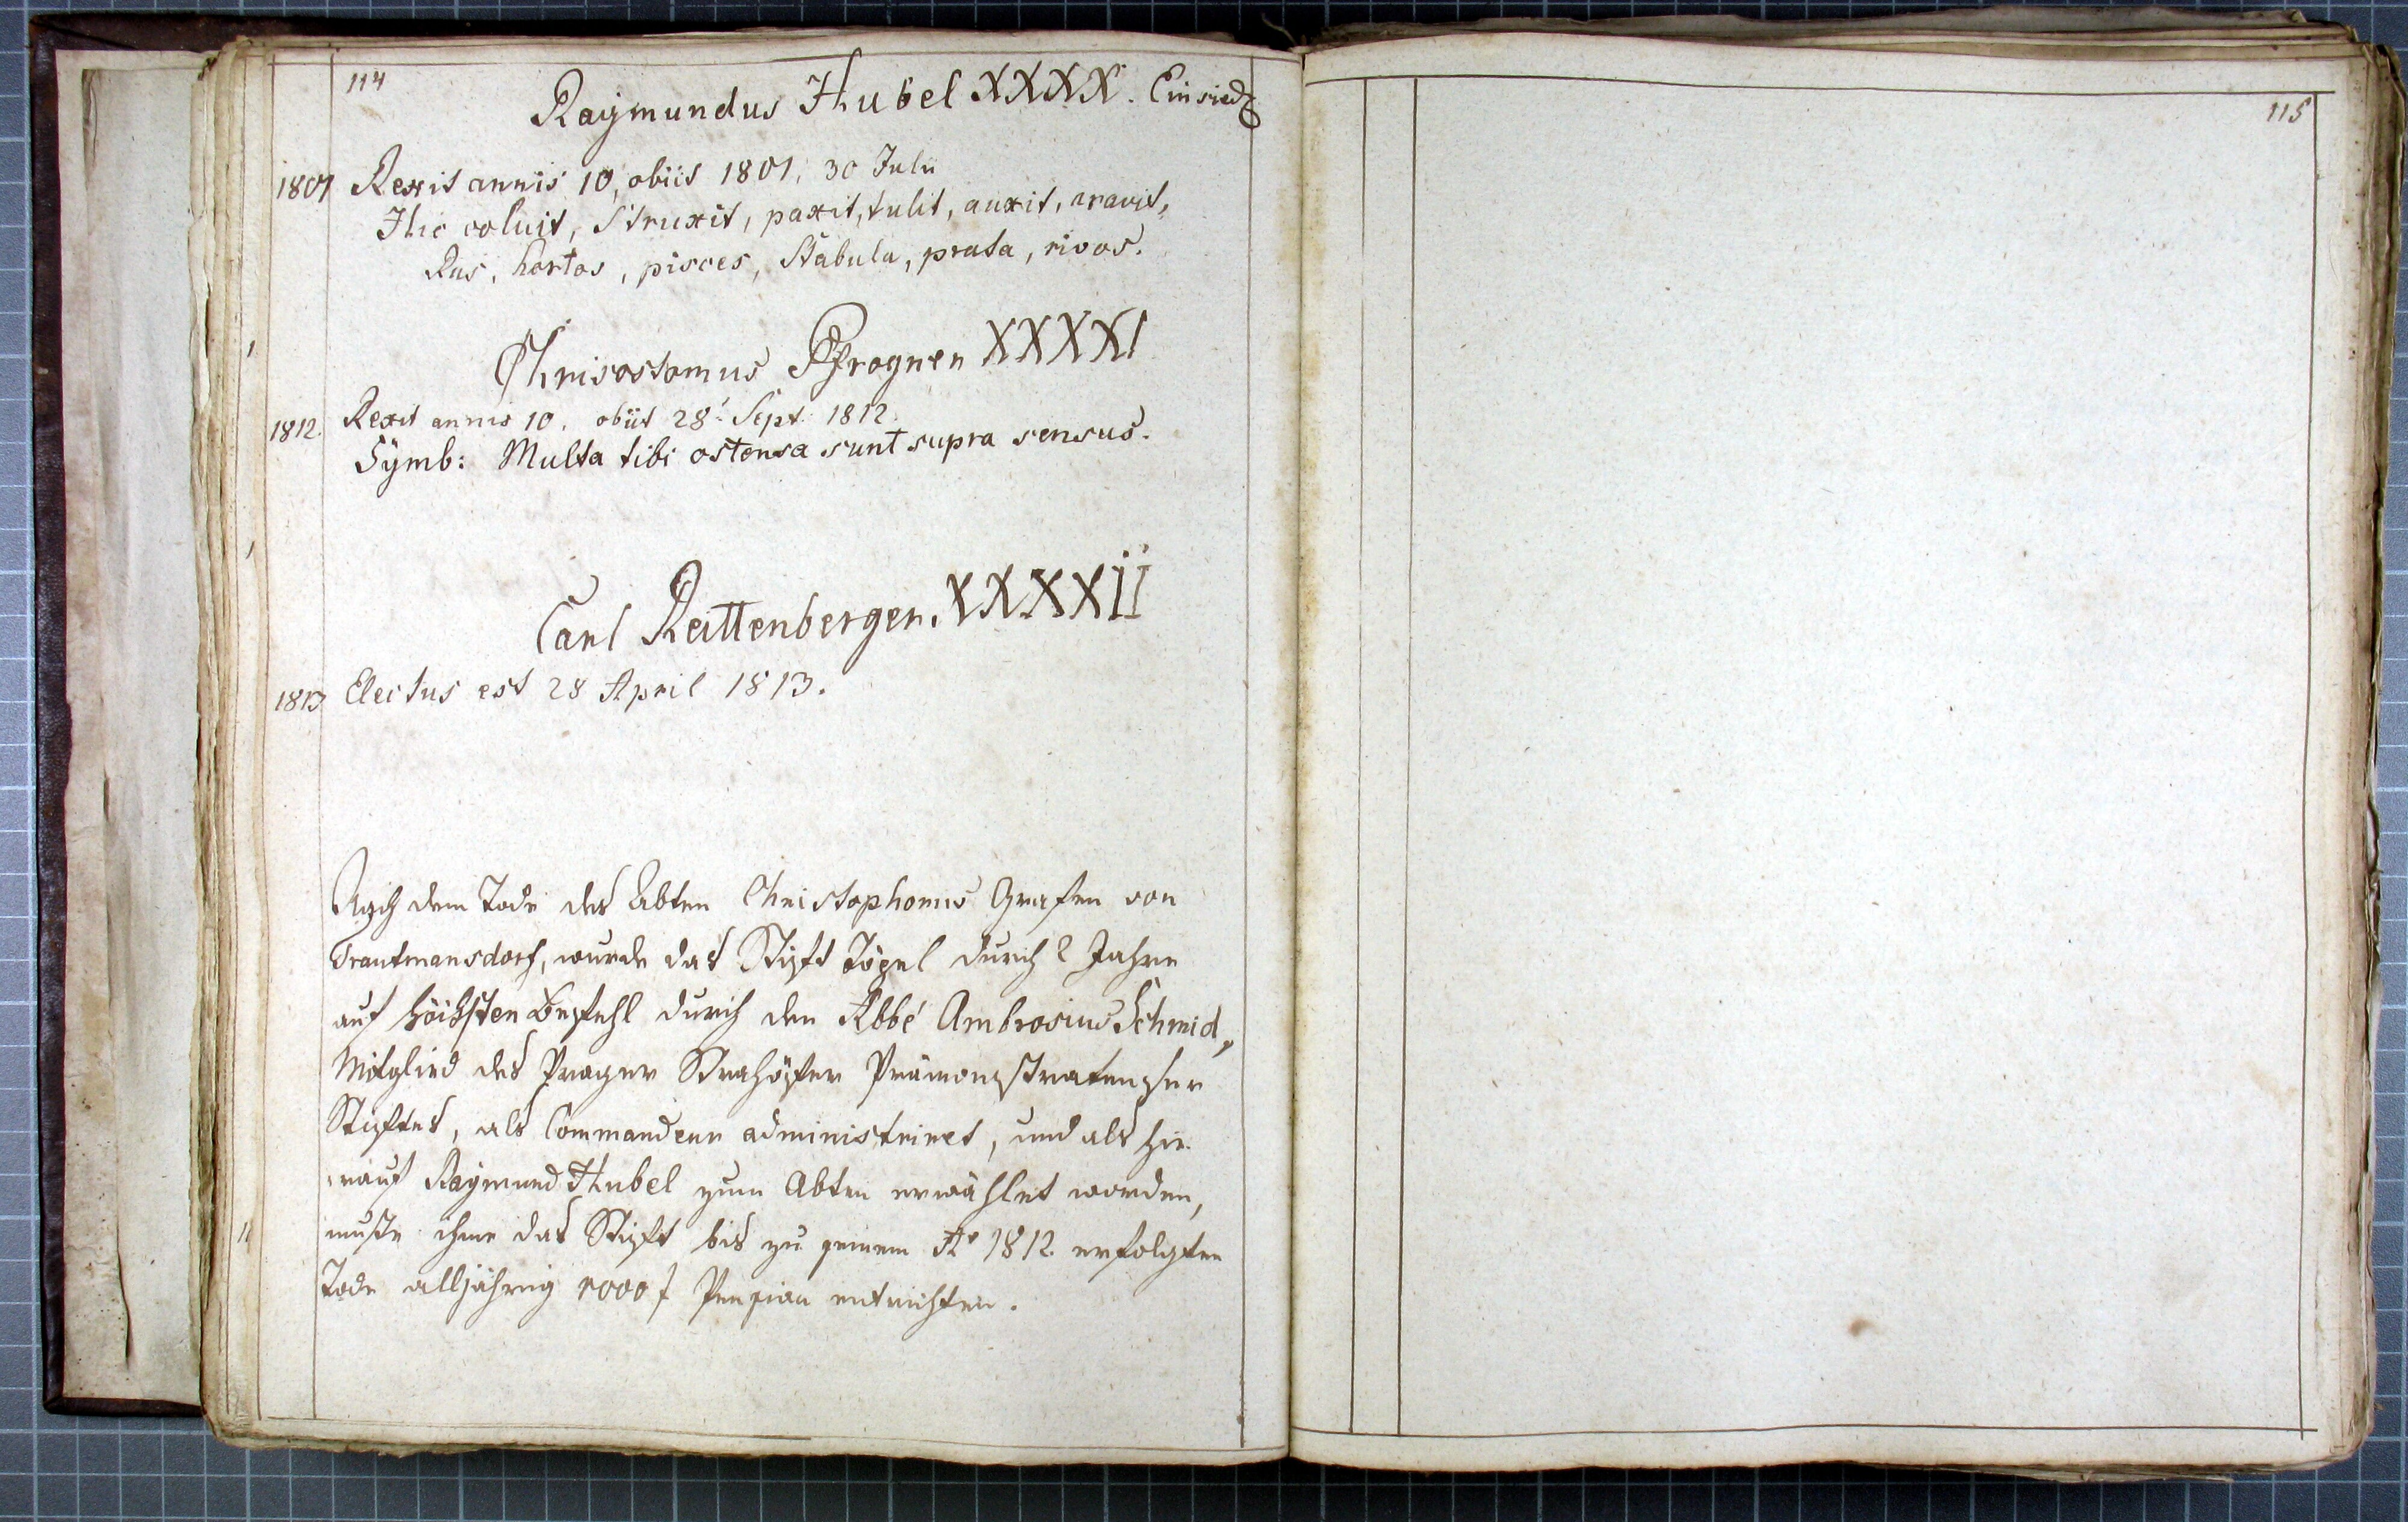 114
Raymundus Hubel XXXX. Einsied
1801 Rexit annis 10, obiit 1801, 30 Julii
Hic coluit, Struxit, paxit, tulit, auxit, aravit,
Rus, hortos, pisces, Stabula, prata, rivos.
Chrisostomus Pfrogner XXXXI
1812. Rexit annis 10. obiit 28. Sept. 1812.
Symb: Multa tibi ostensa sunt supra sensus.
Carl Reittenberger. XXXXII
1813 Electus est 28 April 1813.
Nach dem Tode des Abten Christophorus Grafen von
Trautmansdorf, wurde das Stift Töpel durch 2 Jahre
auf höchsten Befehl durch den Abbé Ambrosius Schmid,
Mitglied des Prager Strahöfer Prämonstratenser
Stiftes, als Commandeur administriret, und als hie-
rauf Raymund Hubel zum Abten erwählet worden,
mußte ihme das Stift bis zu seinem Ao 1812 erfolgten
Tode alljährig 1000 f Pension entrichten.
115